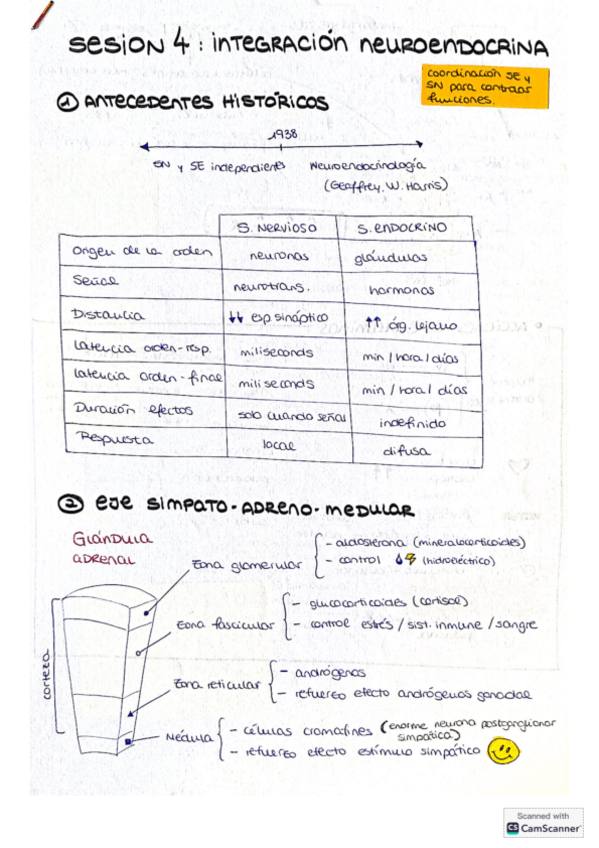 SESION 4: INTEGRACIÓN NEUROENDOCRINA
coordinación SE y
SN para controlar
funciones.
① ANTECEDENTES HISTÓRICOS
1938
SN y SE independientes
Neuroendocrinología
(Geoffrey. W. Harris)
S. NERVIOSO S. ENDOCRINO
Origen de la orden neuronas glándulas
Señal neurotrans. hormonas
Distancia ↓↓ esp sináptico ↑↑ órg. lejano
Latencia orden-resp. miliseconds min / hora / días
Latencia orden-final miliseconds min / hora / días
Duración efectos solo cuando señal indefinido
Respuesta local difusa
② EJE SIMPATO-ADRENO-MEDULAR
Glándula
adrenal
Zona glomerular
- aldosterona (mineralocorticoides)
- control (hidroeléctrico)
Zona fascicular
- glucocorticoides (cortisol)
- control estrés / sist. inmune / sangre
corteza
Zona reticular
- andrógenos
- refuerzo efecto andrógenos gonadal
Médula
- células cromafines (enorme neurona postganglionar
simpática)
- refuerzo efecto estímulo simpático
Scanned with
CS CamScanner